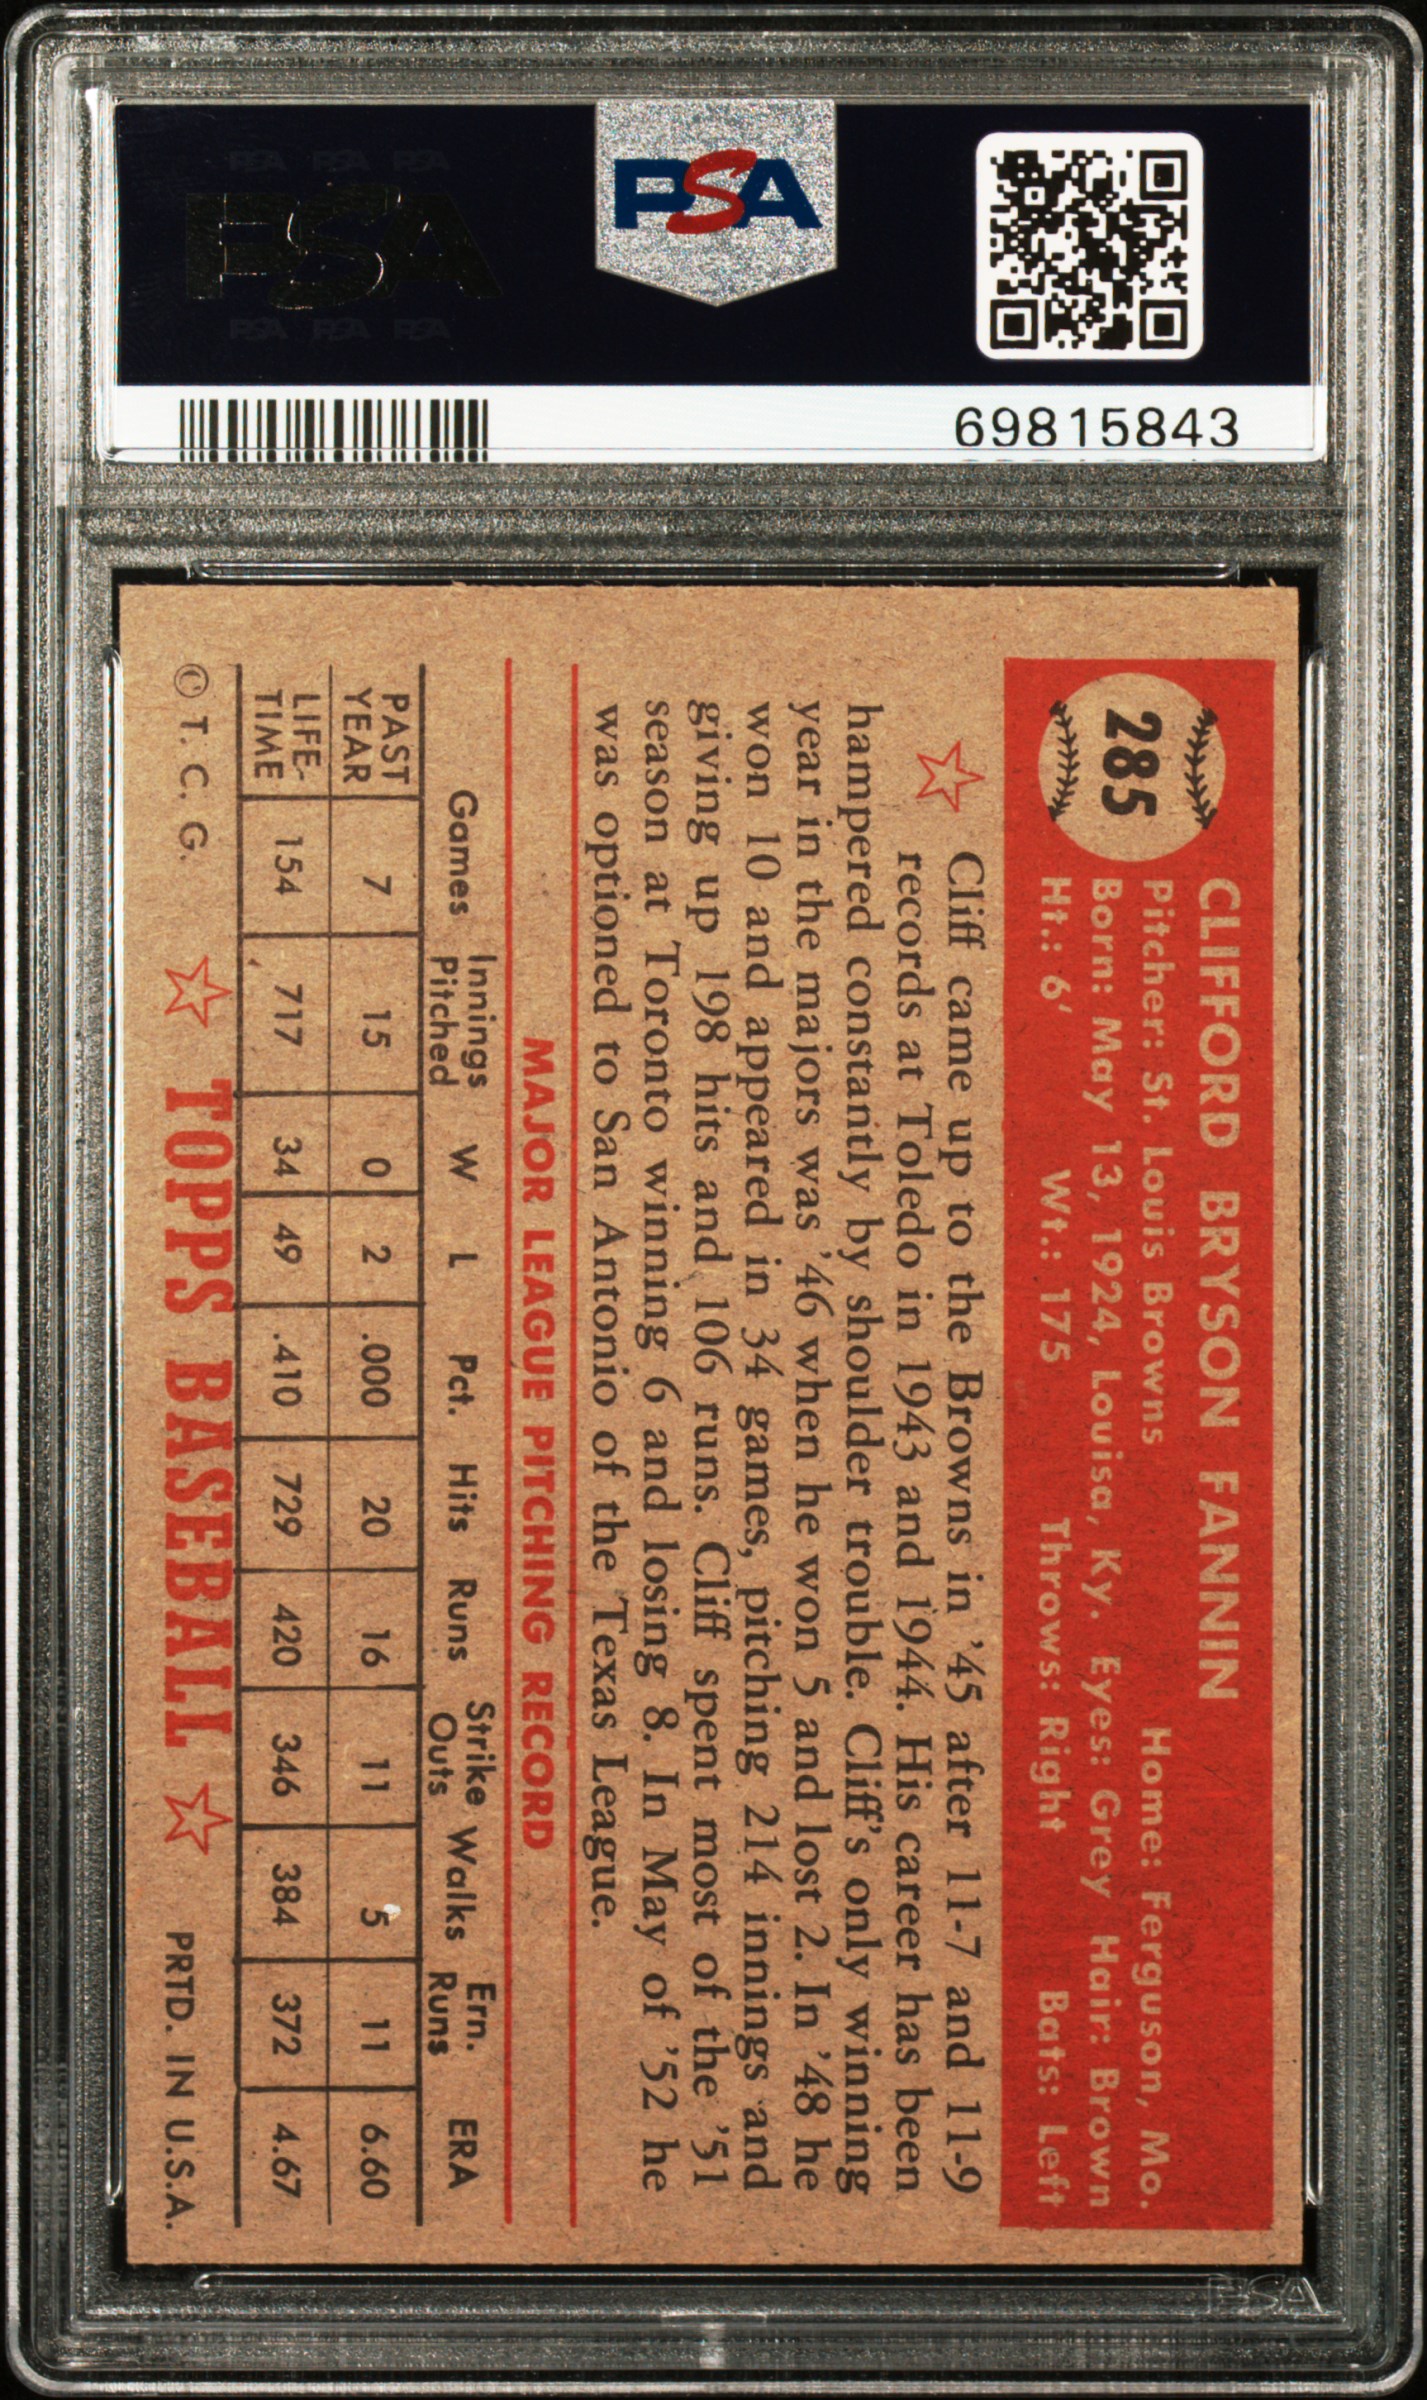 PSA PSA PSA
PSA
PSA PSA PSA
PSA
69815843
285
CLIFFORD BRYSON FANNIN
Pitcher: St. Louis Browns Home: Ferguson, Mo.
Born: May 13, 1924, Louisa, Ky. Eyes: Grey Hair: Brown
Ht.: 6' Wt.: 175 Throws: Right Bats: Left
Cliff came up to the Browns in '45 after 11-7 and 11-9
records at Toledo in 1943 and 1944. His career has been
hampered constantly by shoulder trouble. Cliff's only winning
year in the majors was '46 when he won 5 and lost 2. In '48 he
won 10 and appeared in 34 games, pitching 214 innings and
giving up 198 hits and 106 runs. Cliff spent most of the '51
season at Toronto winning 6 and losing 8. In May of '52 he
was optioned to San Antonio of the Texas League.
MAJOR LEAGUE PITCHING RECORD
Games Innings Pitched W L Pct. Hits Runs Strike Outs Walks Ern. Runs ERA
PAST YEAR 7 15 0 2 .000 20 16 11 5 11 6.60
LIFE-TIME 154 717 34 49 .410 729 420 346 384 372 4.67
© T. C. G. TOPPS BASEBALL PRTD. IN U.S.A.
PSA